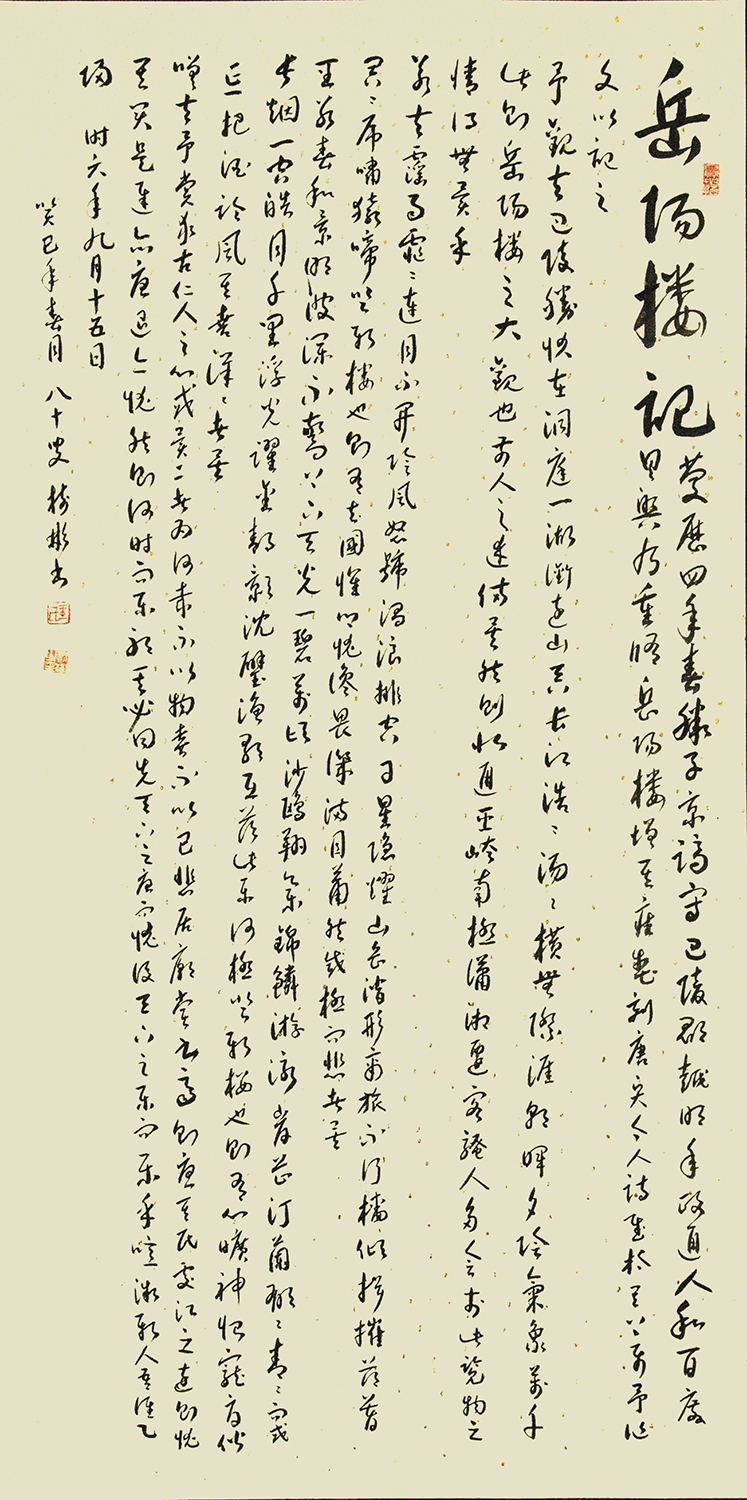 岳阳楼记
慶曆四年春滕子京謫守巴陵郡越明年政通人和百廢
具興乃重脩岳阳楼增其舊制刻唐贤今人詩賦於其上屬予作
文以記之
予觀夫巴陵勝狀在洞庭一湖銜遠山吞長江浩々湯々橫無際涯朝暉夕陰氣象萬千
此則岳阳楼之大觀也前人之述備矣然則北通巫峽南極瀟湘遷客騷人多會於此覽物之
情得無異乎
若夫霪雨霏々連月不開陰風怒號濁浪排空日星隱耀山岳潛形商旅不行檣傾楫摧薄暮
冥々虎嘯猿啼登斯楼也則有去國懷鄉忧讒畏譏滿目蕭然感極而悲者矣
至若春和景明波瀾不驚上下天光一碧萬頃沙鷗翔集錦鱗游泳岸芷汀蘭郁々青々而或
長烟一空皓月千里浮光躍金靜影沈璧漁歌互答此樂何極登斯楼也則有心曠神怡寵辱偕
忘把酒臨風其喜洋々者矣
嗟夫予嘗求古仁人之心或異二者為何哉不以物喜不以己悲居廟堂之高則忧其民處江之遠則忧
其君是進亦忧退亦忧然則何時而樂耶其必曰先天下之忧而忧後天下之樂而樂乎噫微斯人吾誰与
歸 时六年九月十五日
癸巳年春月 八十叟 樹彬书